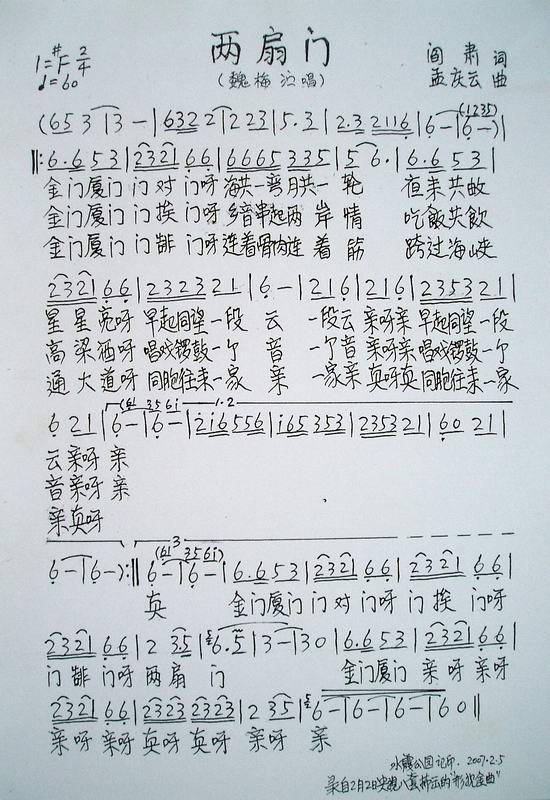 两扇门
1=#F 2/4
♩=60
(魏梅 演唱)
阎肃 词
孟庆云 曲
(65 3 | 3 - | 632 2 | 223 | 5. 3 | 2.3 2116 | 6 - | 6 -) |
(1235)
‖: 6.6 53 | 2321 66 | 6665 335 | 5 6. | 6.6 53 |
金门厦门 门 对 门呀 海共一弯月共一 轮 夜来共敬
金门厦门 门 挨 门呀 乡音串起两 岸 情 吃飯共飲
金门厦门 门 靠 门呀 连着骨肉连 着 筋 跨过海峡
2321 66 | 2323 21 | 6 - | 216 | 216 | 2353 21 |
星 星 亮呀 早起同望一段 云 一段云 亲呀亲 早起同望一段
高 粱 酒呀 唱戏锣鼓一个 音 一个音 亲呀亲 唱戏锣鼓一个
通 大 道呀 同胞往来一家 亲 一家亲 真呀真 同胞往来一家
(61 3561 1·2
6 21 | 6 - | 6 - | 216 556 | 165 353 | 2353 21 | 60 21 |
云 亲呀 亲
音 亲呀 亲
亲 真呀
3
(61 3561)
6 - | 6 - ) :‖ 6 - | 6 - | 6.6 53 | 2321 66 | 2321 66 |
真 金门厦门 门 对 门呀 门 挨 门呀
2321 66 | 2 35 | 6. 5 | 3 - | 30 | 6.6 53 | 2321 66 |
门 靠 门呀 两 扇 门 金门厦门 亲 呀 亲呀
2321 66 | 2323 2323 | 2 35 | 6 - | 6 - | 6 - | 6 0 ‖
亲 呀 亲呀 真呀 真呀 亲呀 亲
公园记印. 2007.2.5
录自2月2日央视八套